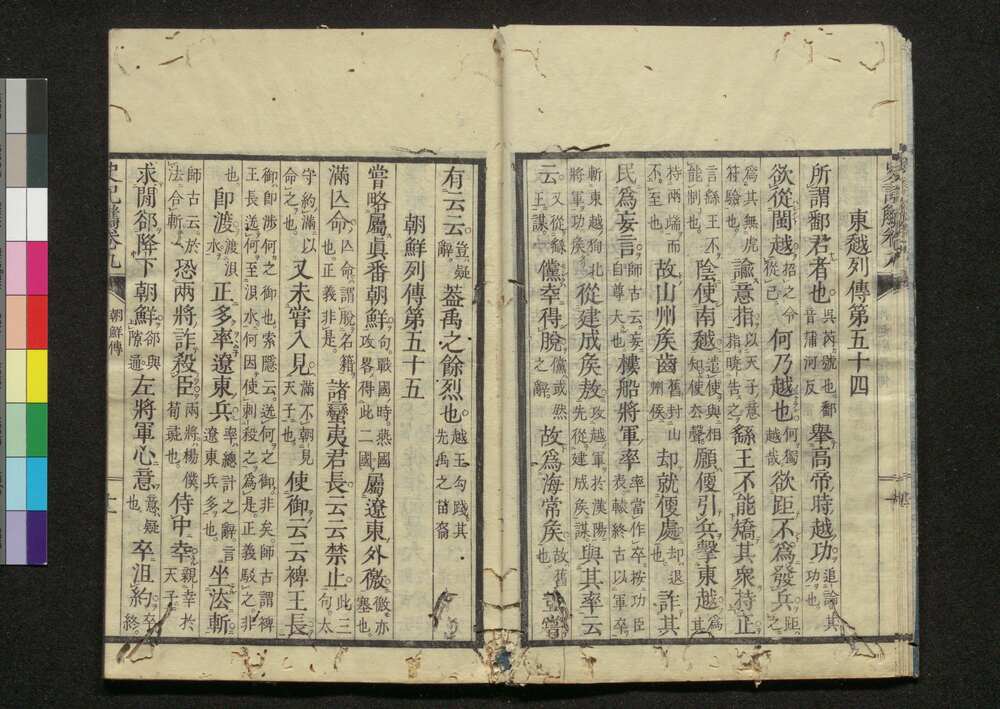 東越列傳第五十四
所謂鄱君者也吳芮號也鄱音蒲河反舉高帝時越功追論其功也
欲從閩越招之令從己何乃越也何獨越哉欲距不為發兵距之
為其無虎符驗也諭意指以天子意指曉告之繇王不能矯其衆持正
言繇王不能制也陰使南越遣使與相知願便引兵擊東越
持兩端而不至也故山州侯齒舊封山州侯却就便處却退也詐其
民為妄言師古云妄自尊大也樓船將軍率率當作卒按功臣表轅終古以軍卒
斬東越狥北將軍功侯從建成侯敖攻越軍於漢陽先從建成侯謀與其率云
云又從繇王謀儻幸得脫儻或然之辭故為海常侯故舊也豈嘗
有云云豈疑辭蓋禹之餘烈也越王勾踐其先禹之苗裔
朝鮮列傳第五十五
嘗略屬眞番朝鮮句戰國時燕國攻略得此二國屬遼東外徼徼亦塞也
滿亾命亾命謂脫名籍也正義非是諸蠻夷君長云云禁止此三句太
守約滿以命之也又未嘗入見滿不朝見天子也使御云云裨王長
御即渉何之御也索隱云送何之御非矣師古謂裨王長送何至浿水何因使刺殺之為是正義駁之非
也即渡渡浿水正多率遼東兵率總計之辭言遼東兵多也坐法斬
師古云於法合斬恐兩將詐殺臣兩將楊僕荀彘也侍中幸親幸於天子
求閒郤降下朝鮮郤與隙通左將軍心意意疑也卒沮約卒終
朝鮮傳